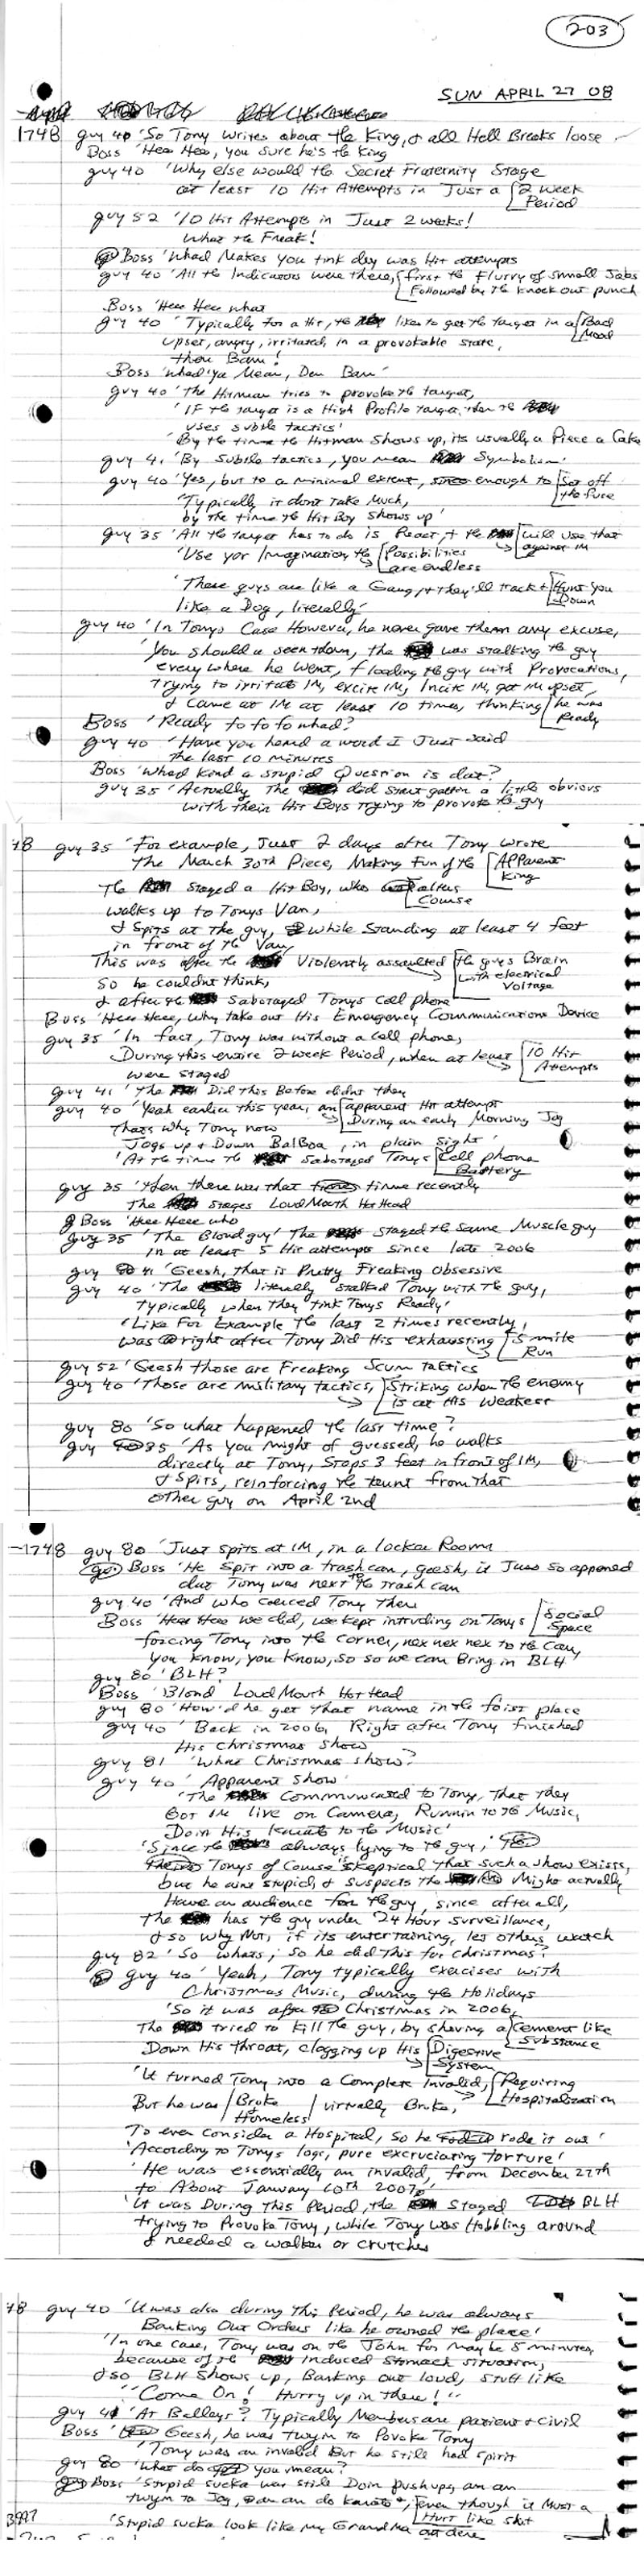 203
SUN APRIL 27 08
1748 guy 40 'So Tony writes about the King, & all Hell Breaks loose
Boss 'Hee Hee, you sure he's the King
guy 40 'Why else would the Secret Fraternity Stage
at least 10 Hit Attempts in Just a 2 week
Period
guy 52 '10 Hit Attempts in Just 2 weeks!
What the Freak!
Boss 'Whad Makes you tink dey was Hit attempts
guy 40 'All the Indicators were there, first the flurry of small Jabs
Followed by the knock out punch
Boss 'Hee Hee what
guy 40 'Typically for a Hit, the likes to get the target in a Bad
Mood
upset, angry, irritated, in a provokable state,
then Bam!
Boss 'whad ya Mean, Den Bam'
guy 40 'The Hitman tries to provoke the target,
'IF the target is a High Profile target, then the
uses subtle tactics'
'By the time the Hitman shows up, its usually a Piece a Cake
guy 41 'By Subtle tactics, you mean Symbolism'
guy 40 'Yes, but to a minimal extent, enough to Set off
the fuse
'Typically it dont take Much,
by the time the Hit Boy shows up'
guy 35 'All the target has to do is React, & the will use that
against IM
'Use yor Imagination, the Possibilities
are endless
'These guys are like a Gang, & they'll track & Hunt you
Down
like a Dog, literally'
guy 40 'In Tonys Case However, he never gave them any excuse,
'You should a seen them, the was stalking the guy
every where he went, flooding the guy with Provocations,
trying to irritate IM, excite IM, Incite IM, get IM upset,
& came at IM at least 10 times, thinking he was
Ready
Boss 'Ready fo fo fo whad?
guy 40 'Have you heard a word I Just said
the last 10 minutes
Boss 'Whad Kind a stupid Question is dat?
guy 35 'Actually the did start gettin a little obvious
with their Hit Boys trying to provoke the guy
48 guy 35 'For example, Just 2 days after Tony wrote
The March 30th Piece, Making Fun of the Apparent
King
the staged a Hit Boy, who alters
Course
walks up to Tonys Van,
& Spits at the guy, while standing at least 4 feet
in front of the Van,
This was after the Violently assaulted the guys Brain
with electrical
Voltage
So he couldnt think,
& after the Sabotaged Tonys Cell phone
Boss 'Hee Hee, Why take out His Emergency Communications Device
guy 35 'In fact, Tony was without a cell phone,
During this entire 2 week Period, when at least 10 Hit
Attempts
were staged
guy 41 'The Did this Before didnt they
guy 40 'Yeah earlier this year, an apparent Hit attempt
During an early Morning Jog
Thats why Tony now
Jogs up & Down Balboa, in plain sight'
'At the time the sabotaged Tonys Cell phone
Battery
guy 35 'then there was that time recently
The stages Loud Mouth Hot Head
Boss 'Hee Heee who
guy 35 'The Blond guy' The staged the same Muscle guy
in at least 5 Hit attempts since late 2006
guy 41 'Geesh, that is Pretty Freaking Obsessive
guy 40 'The literally stalked Tony with the guy,
Typically when they tink Tonys Ready'
'Like For Example the last 2 times recently,
was right after Tony Did His exhausting 15 mile
Run
guy 52 'Geesh those are Freaking Scum Tactics
guy 40 'Those are military tactics, Striking when the enemy
is at His Weakest
guy 80 'So what happened the last time?
guy 35 'As you might of guessed, he walks
directly at Tony, stops 3 feet in front of IM,
& Spits, reinforcing the taunt from that
other guy on April 2nd
1748 guy 80 'Just spits at IM, in a locker Room
Boss 'He spit into a trash can, geesh, it Juss so appened
dat Tony was next to the trash can
guy 40 'And who coerced Tony there
Boss 'Hee Hee we did, we kept intruding on Tonys Social
Space
forcing Tony into the corner, nex nex nex to the Can,
you know, you know, so so we can Bring in BLH
guy 80 'BLH?
Boss 'Blond Loud Mouth Hot Head
guy 80 'How'd he get that name in the foist place
guy 40 'Back in 2006, Right after Tony finished
His Christmas show
guy 81 'What Christmas show?
guy 40 'Apparent show'
'The Communicated to Tony, that they
got IM live on Camera, Runnin to the Music,
Doin His karate to the Music'
'Since the always lying to the guy,'
Tonys of Course skeptical that such a show exists,
but he aint stupid, & suspects the Might actually
Have an audience for the guy, since after all,
the has the guy under 24 Hour surveillance,
& so why Not, if its entertaining, let others watch
guy 82 'So whats, so he did this for Christmas?
guy 40 'Yeah, Tony typically exercises with
Christmas Music, during the Holidays
'So it was after Christmas in 2006,
The tried to kill the guy, by shoving a cement like
Substance
Down His throat, clogging up His Digestive
System
'It turned Tony into a Complete Invalid, Requiring
Hospitalization
But he was Broke & Homeless virtually Broke,
To even consider a Hospital, so he rode it out'
'According to Tonys logs, pure excruciating torture'
'He was essentially an invalid, from December 27th
to About January 10th 2007'
'It was During this Period, the Staged BLH
trying to Provoke Tony, while Tony was Hobbling around
& needed a walker or crutches
48 guy 40 'It was also during this Period, he was always
Barking Out Orders like he owned the place'
'In one case, Tony was on the John for maybe 5 minutes,
because of the Induced Stomach situation,
& so BLH shows up, Barking out loud, stuff like
"Come On! Hurry up in there!"
guy 41 'At Ballys? Typically Members are patient & civil
Boss 'Geesh, he was tryin to Povoke Tony
'Tony was an invalid But he still had spirit
guy 80 'What do you mean?
Boss 'Stupid sucka was still Doin pushups, an an
tryin to Jog, an an do karate, even though it Must a
Hurt like shit
3997 'Stupid sucka look like my Grandma out dere